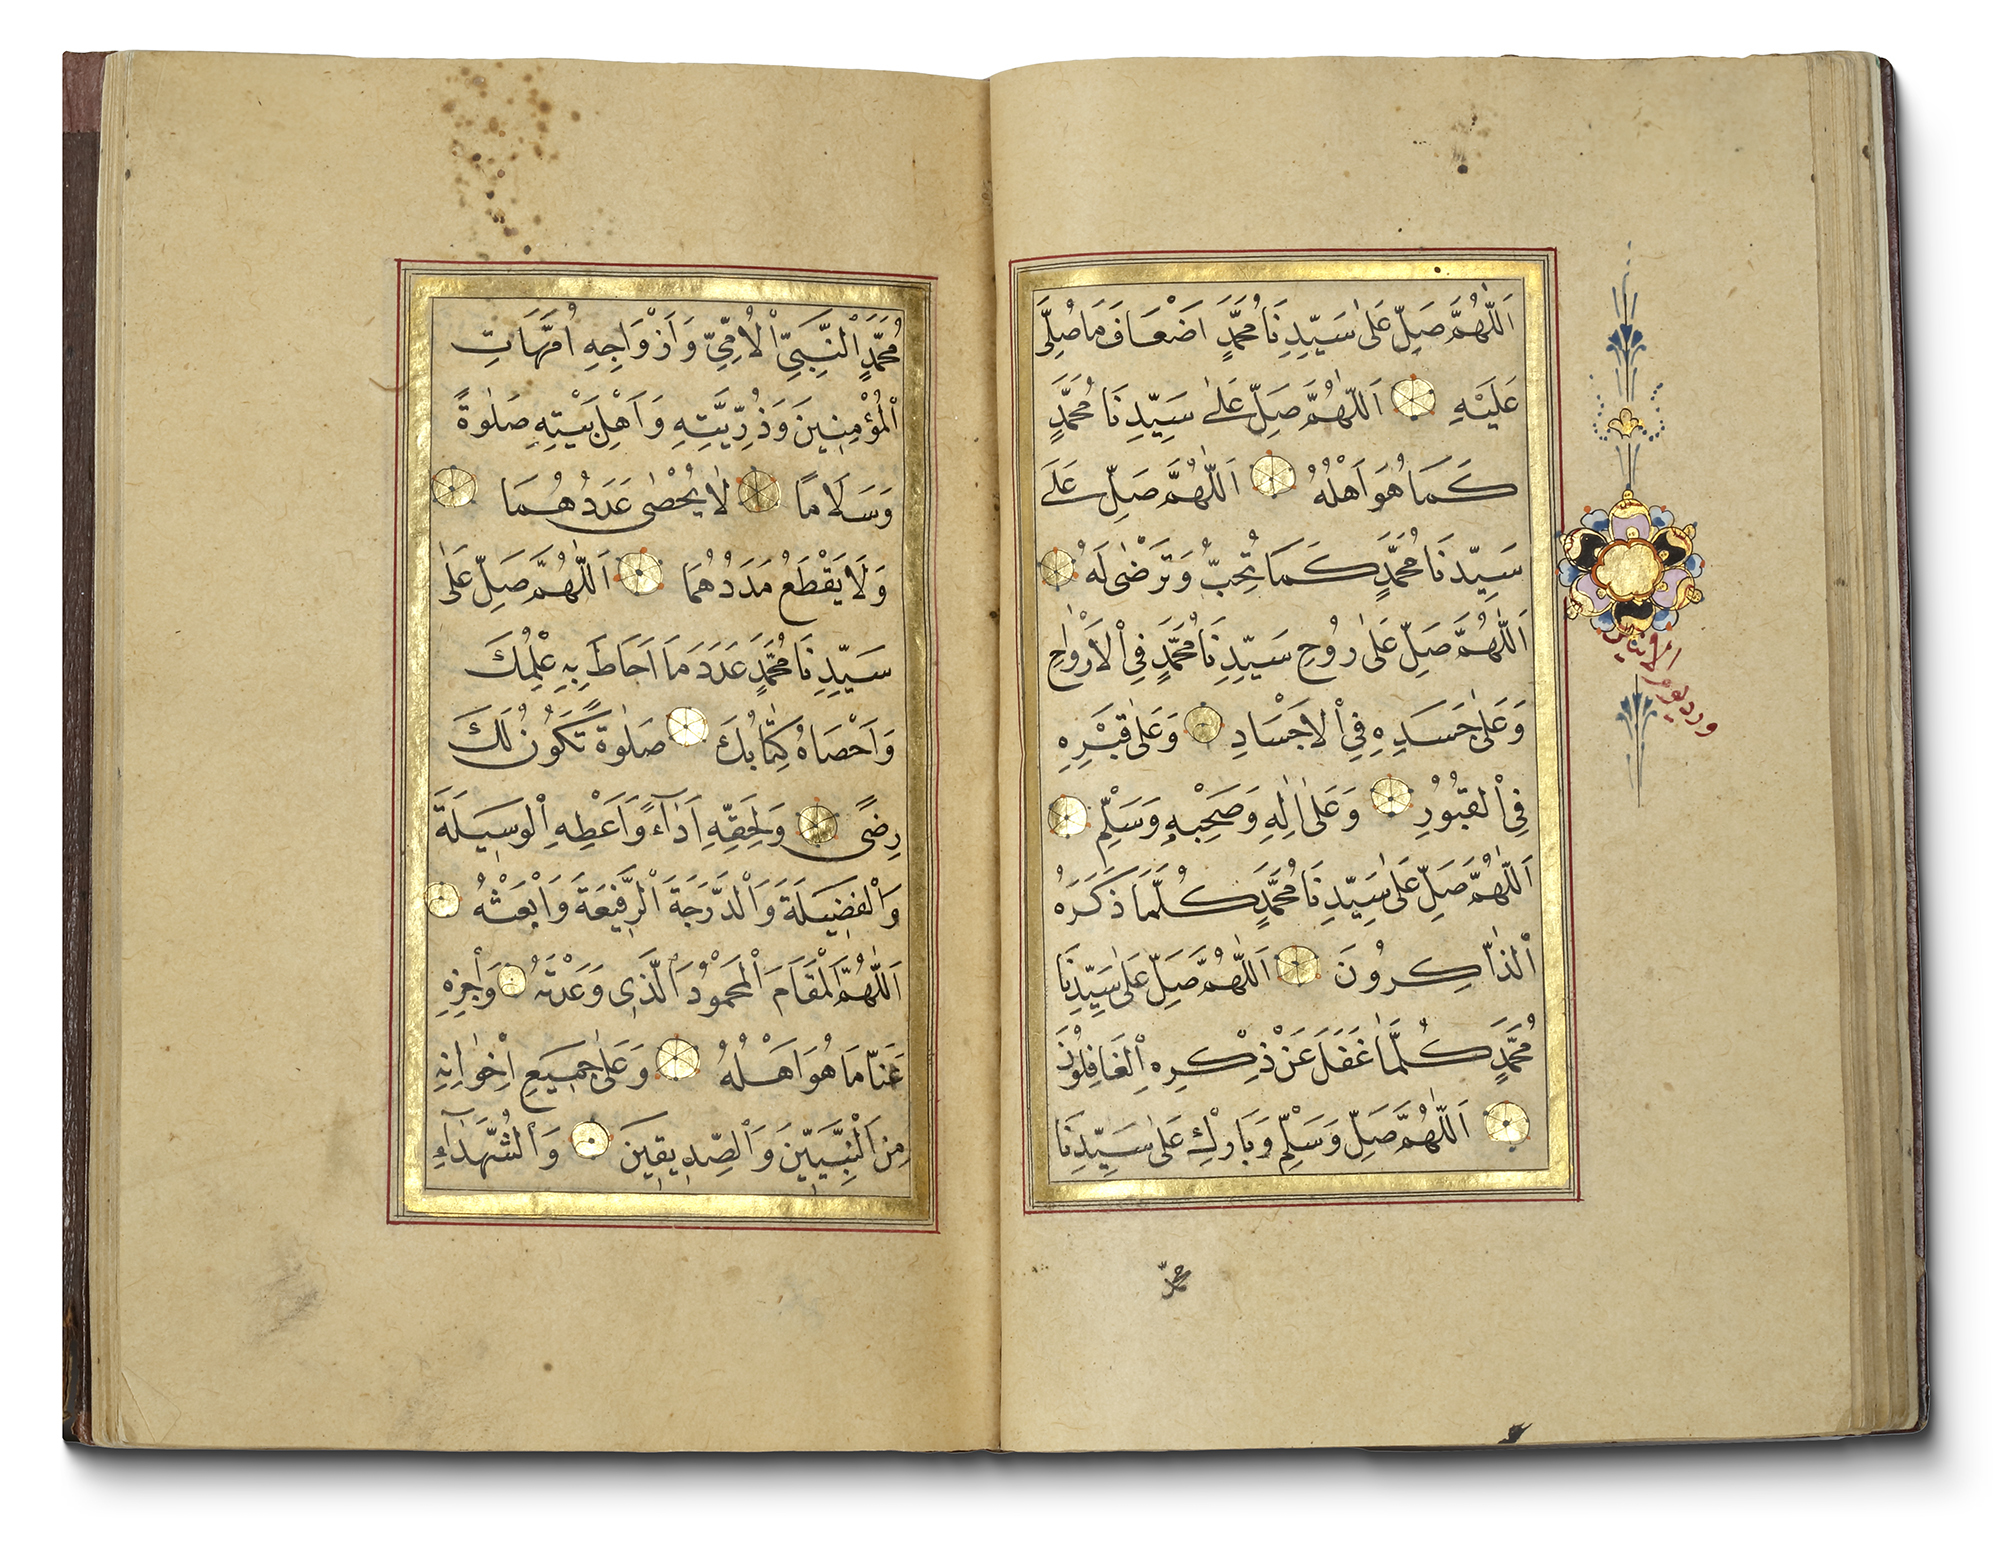 اَللّٰهُمَّ صَلِّ عَلٰى سَيِّدِنَا مُحَمَّدٍ اَضْعَافَ مَا صُلِّىَ
عَلَيْهِ اَللّٰهُمَّ صَلِّ عَلٰى سَيِّدِنَا مُحَمَّدٍ
كَمَا هُوَ اَهْلُهُ اَللّٰهُمَّ صَلِّ عَلٰى
سَيِّدِنَا مُحَمَّدٍ كَمَا تُحِبُّ وَتَرْضٰى لَهُ
اَللّٰهُمَّ صَلِّ عَلٰى رُوحِ سَيِّدِنَا مُحَمَّدٍ فِى اْلاَرْوَاحِ
وَعَلٰى جَسَدِهِ فِى اْلاَجْسَادِ وَعَلٰى قَبْرِهِ
فِى الْقُبُورِ وَعَلٰى اٰلِهِ وَصَحْبِهِ وَسَلِّمْ
اَللّٰهُمَّ صَلِّ عَلٰى سَيِّدِنَا مُحَمَّدٍ كُلَّمَا ذَكَرَهُ
الذَّاكِرُونَ اَللّٰهُمَّ صَلِّ عَلٰى سَيِّدِنَا
مُحَمَّدٍ كُلَّمَا غَفَلَ عَنْ ذِكْرِهِ الْغَافِلُونَ
اَللّٰهُمَّ صَلِّ وَسَلِّمْ وَبَارِكْ عَلٰى سَيِّدِنَا
ورد يوم الاثنين
محمد
مُحَمَّدٍ النَّبِىِّ اْلاُمِّىِّ وَاَزْوَاجِهِ اُمَّهَاتِ
الْمُؤْمِنِينَ وَذُرِّيَّتِهِ وَاَهْلِ بَيْتِهِ صَلٰوةً
وَسَلَامًا لَا يُحْصٰى عَدَدُهُمَا
وَلَا يَقْطَعُ مَدَدُهُمَا اَللّٰهُمَّ صَلِّ عَلٰى
سَيِّدِنَا مُحَمَّدٍ عَدَدَ مَا اَحَاطَ بِهِ عِلْمُكَ
وَاَحْصَاهُ كِتَابُكَ صَلٰوةً تَكُونُ لَكَ
رِضًى وَلِحَقِّهِ اَدَاۤءً وَاَعْطِهِ الْوَسِيلَةَ
وَالْفَضِيلَةَ وَالدَّرَجَةَ الرَّفِيعَةَ وَابْعَثْهُ
اَللّٰهُمَّ الْمَقَامَ الْمَحْمُودَ الَّذِى وَعَدْتَهُ وَاَجْزِهِ
عَنَّا مَا هُوَ اَهْلُهُ وَعَلٰى جَمِيعِ اِخْوَانِهِ
مِنَ النَّبِيِّينَ وَالصِّدِّيقِينَ وَالشُّهَدَاۤءِ